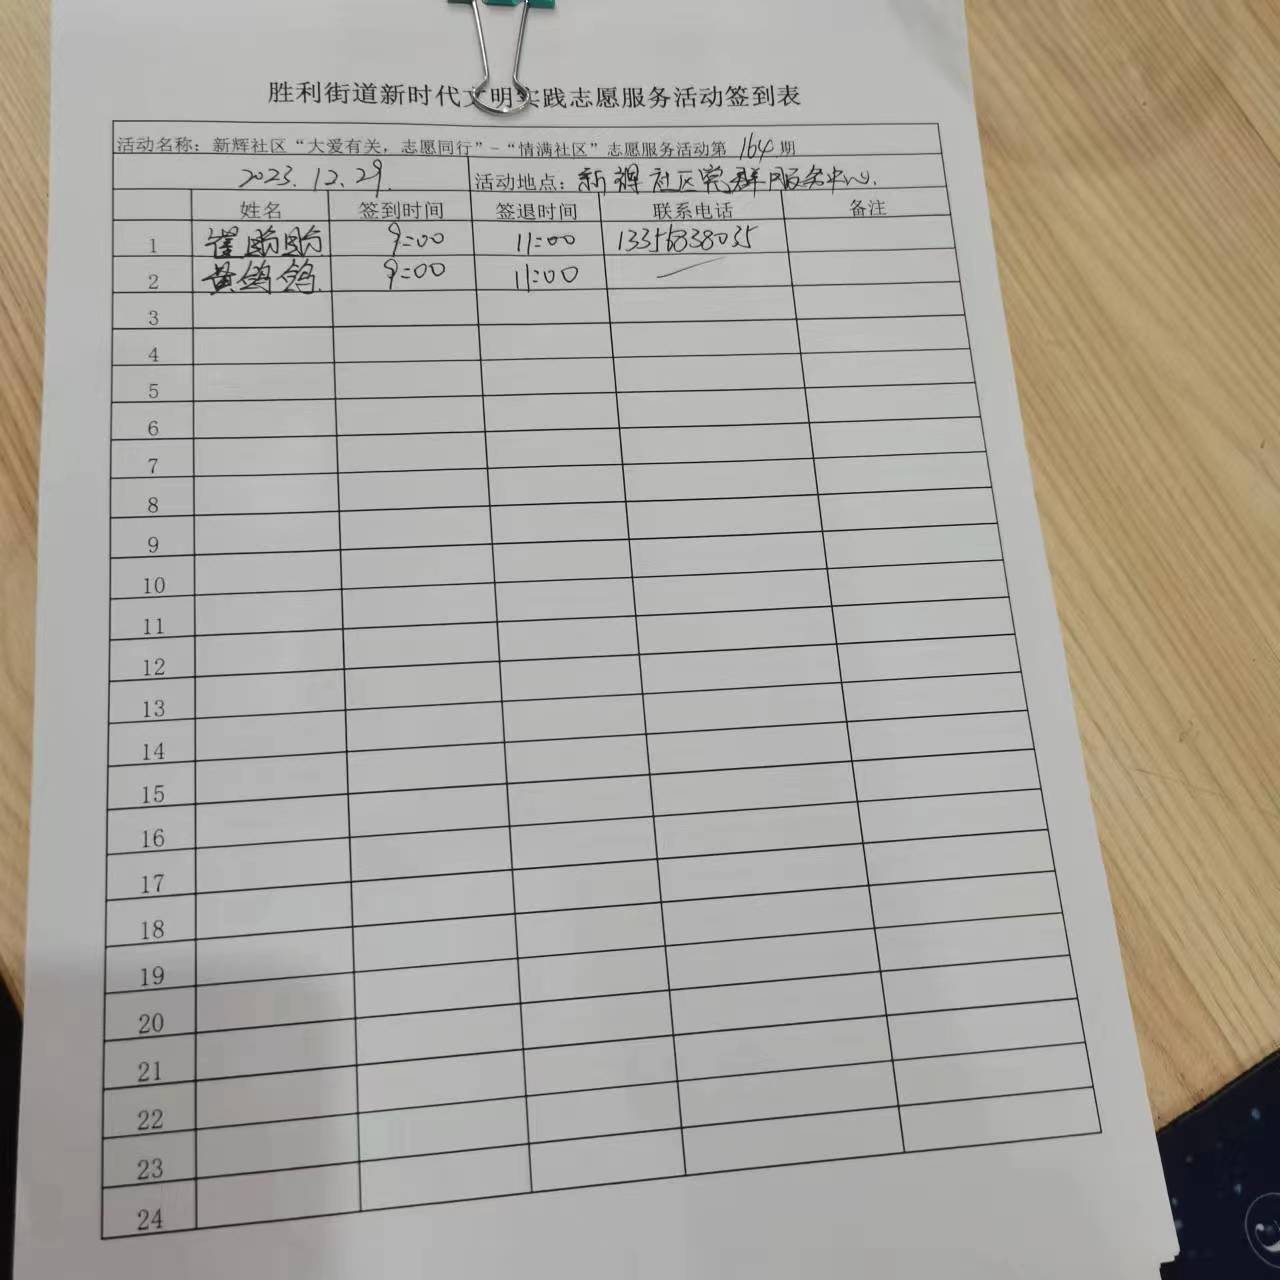 胜利街道新时代文明实践志愿服务活动签到表
活动名称：新辉社区“大爱有关，志愿同行”-“情满社区”志愿服务活动第 164 期
2023.12.29. 活动地点：新辉社区党群服务中心.
姓名 签到时间 签退时间 联系电话 备注
1 崔盼盼 9:00 11:00 13356838035
2 黄鸽鸽 9:00 11:00
3
4
5
6
7
8
9
10
11
12
13
14
15
16
17
18
19
20
21
22
23
24